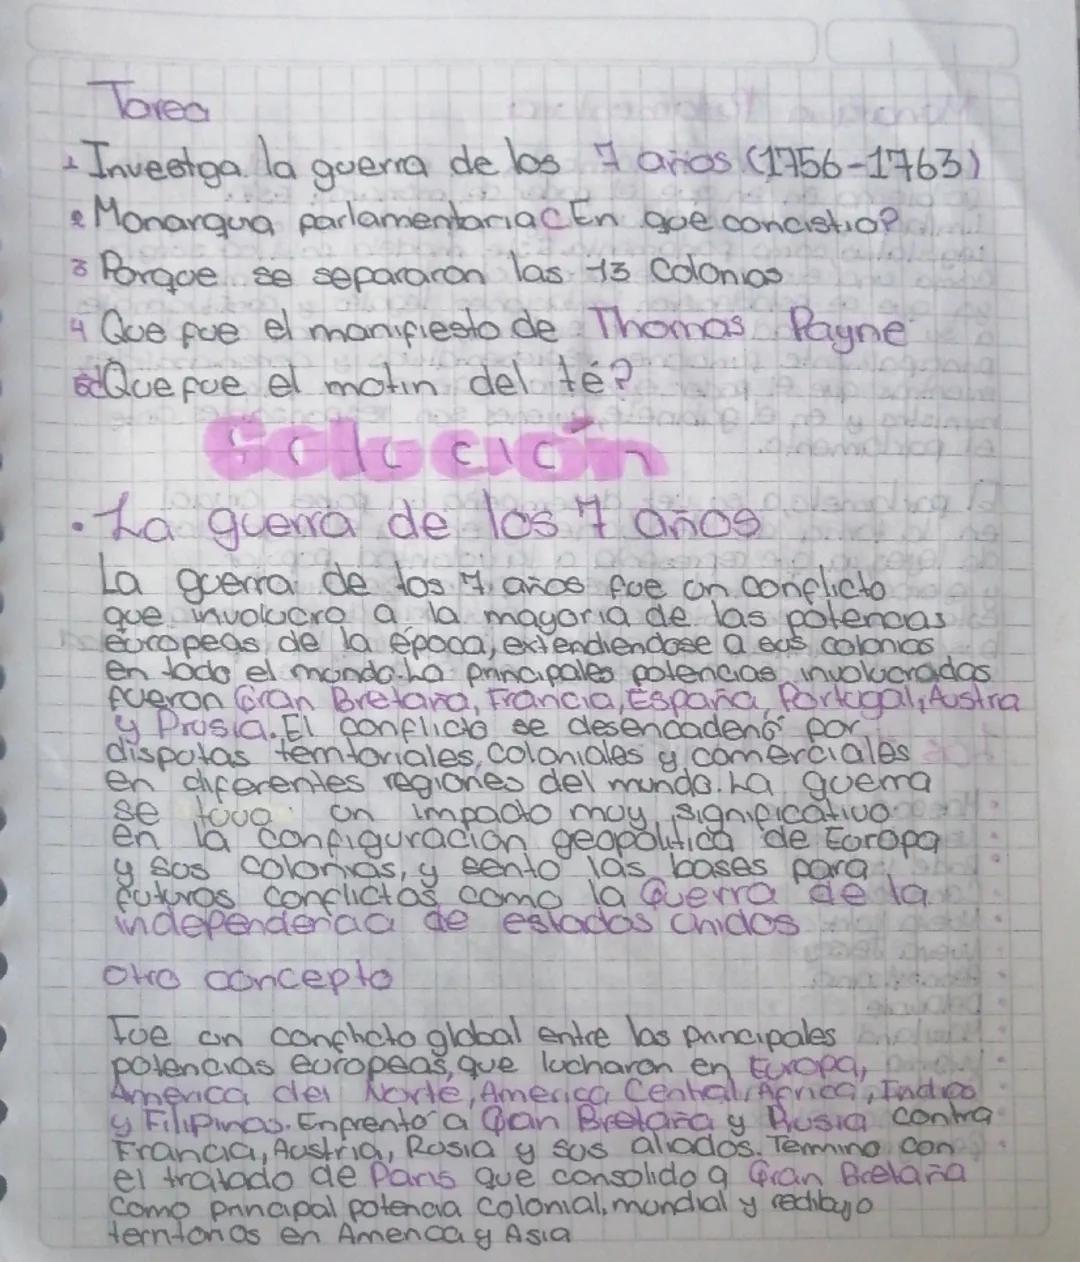 Tarea
1 Investga la guerra de los 7 años (1756-1763)
2 Monarqua parlamentaria ¿En que concistio?
3 Porque se separaron las 13 Colonias
4 Que fue el manifiesto de Thomas Payne
5 ¿Que fue el motin del té?
Solución
• La guerra de los 7 años
La guerra de los 7 años fue un conflicto
que involucro a la mayoria de las potencias
europeas de la época, extendiendose a sus colonias
en todo el mundo. La principales potencias involucradas
fueron Gran Bretaña, Francia, España, Portugal, Austria
y Prusia. El conflicto se desencadenó por
disputas territoriales, coloniales y comerciales
en diferentes regiones del mundo. La guerra
se tuvo un impacto muy significativo
en la configuración geopolítica de Europa
y sus colonias, y sento las bases para
futuros conflictos como la Guerra de la
independencia de estados unidos
Otro concepto
Fue un conflicto global entre las principales
potencias europeas, que lucharon en Europa,
America del Norte, America Central, Africa, India
y Filipinas. Enfrento a Gran Bretaña y Prusia contra
Francia, Austria, Rusia y sus aliados. Termino con
el tratado de Paris que consolido a Gran Bretaña
como principal potencia colonial, mundial y redibujo
territorios en America y Asia